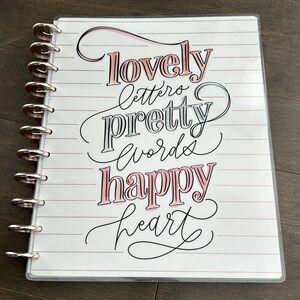 lovely
letters
pretty
words
happy
heart